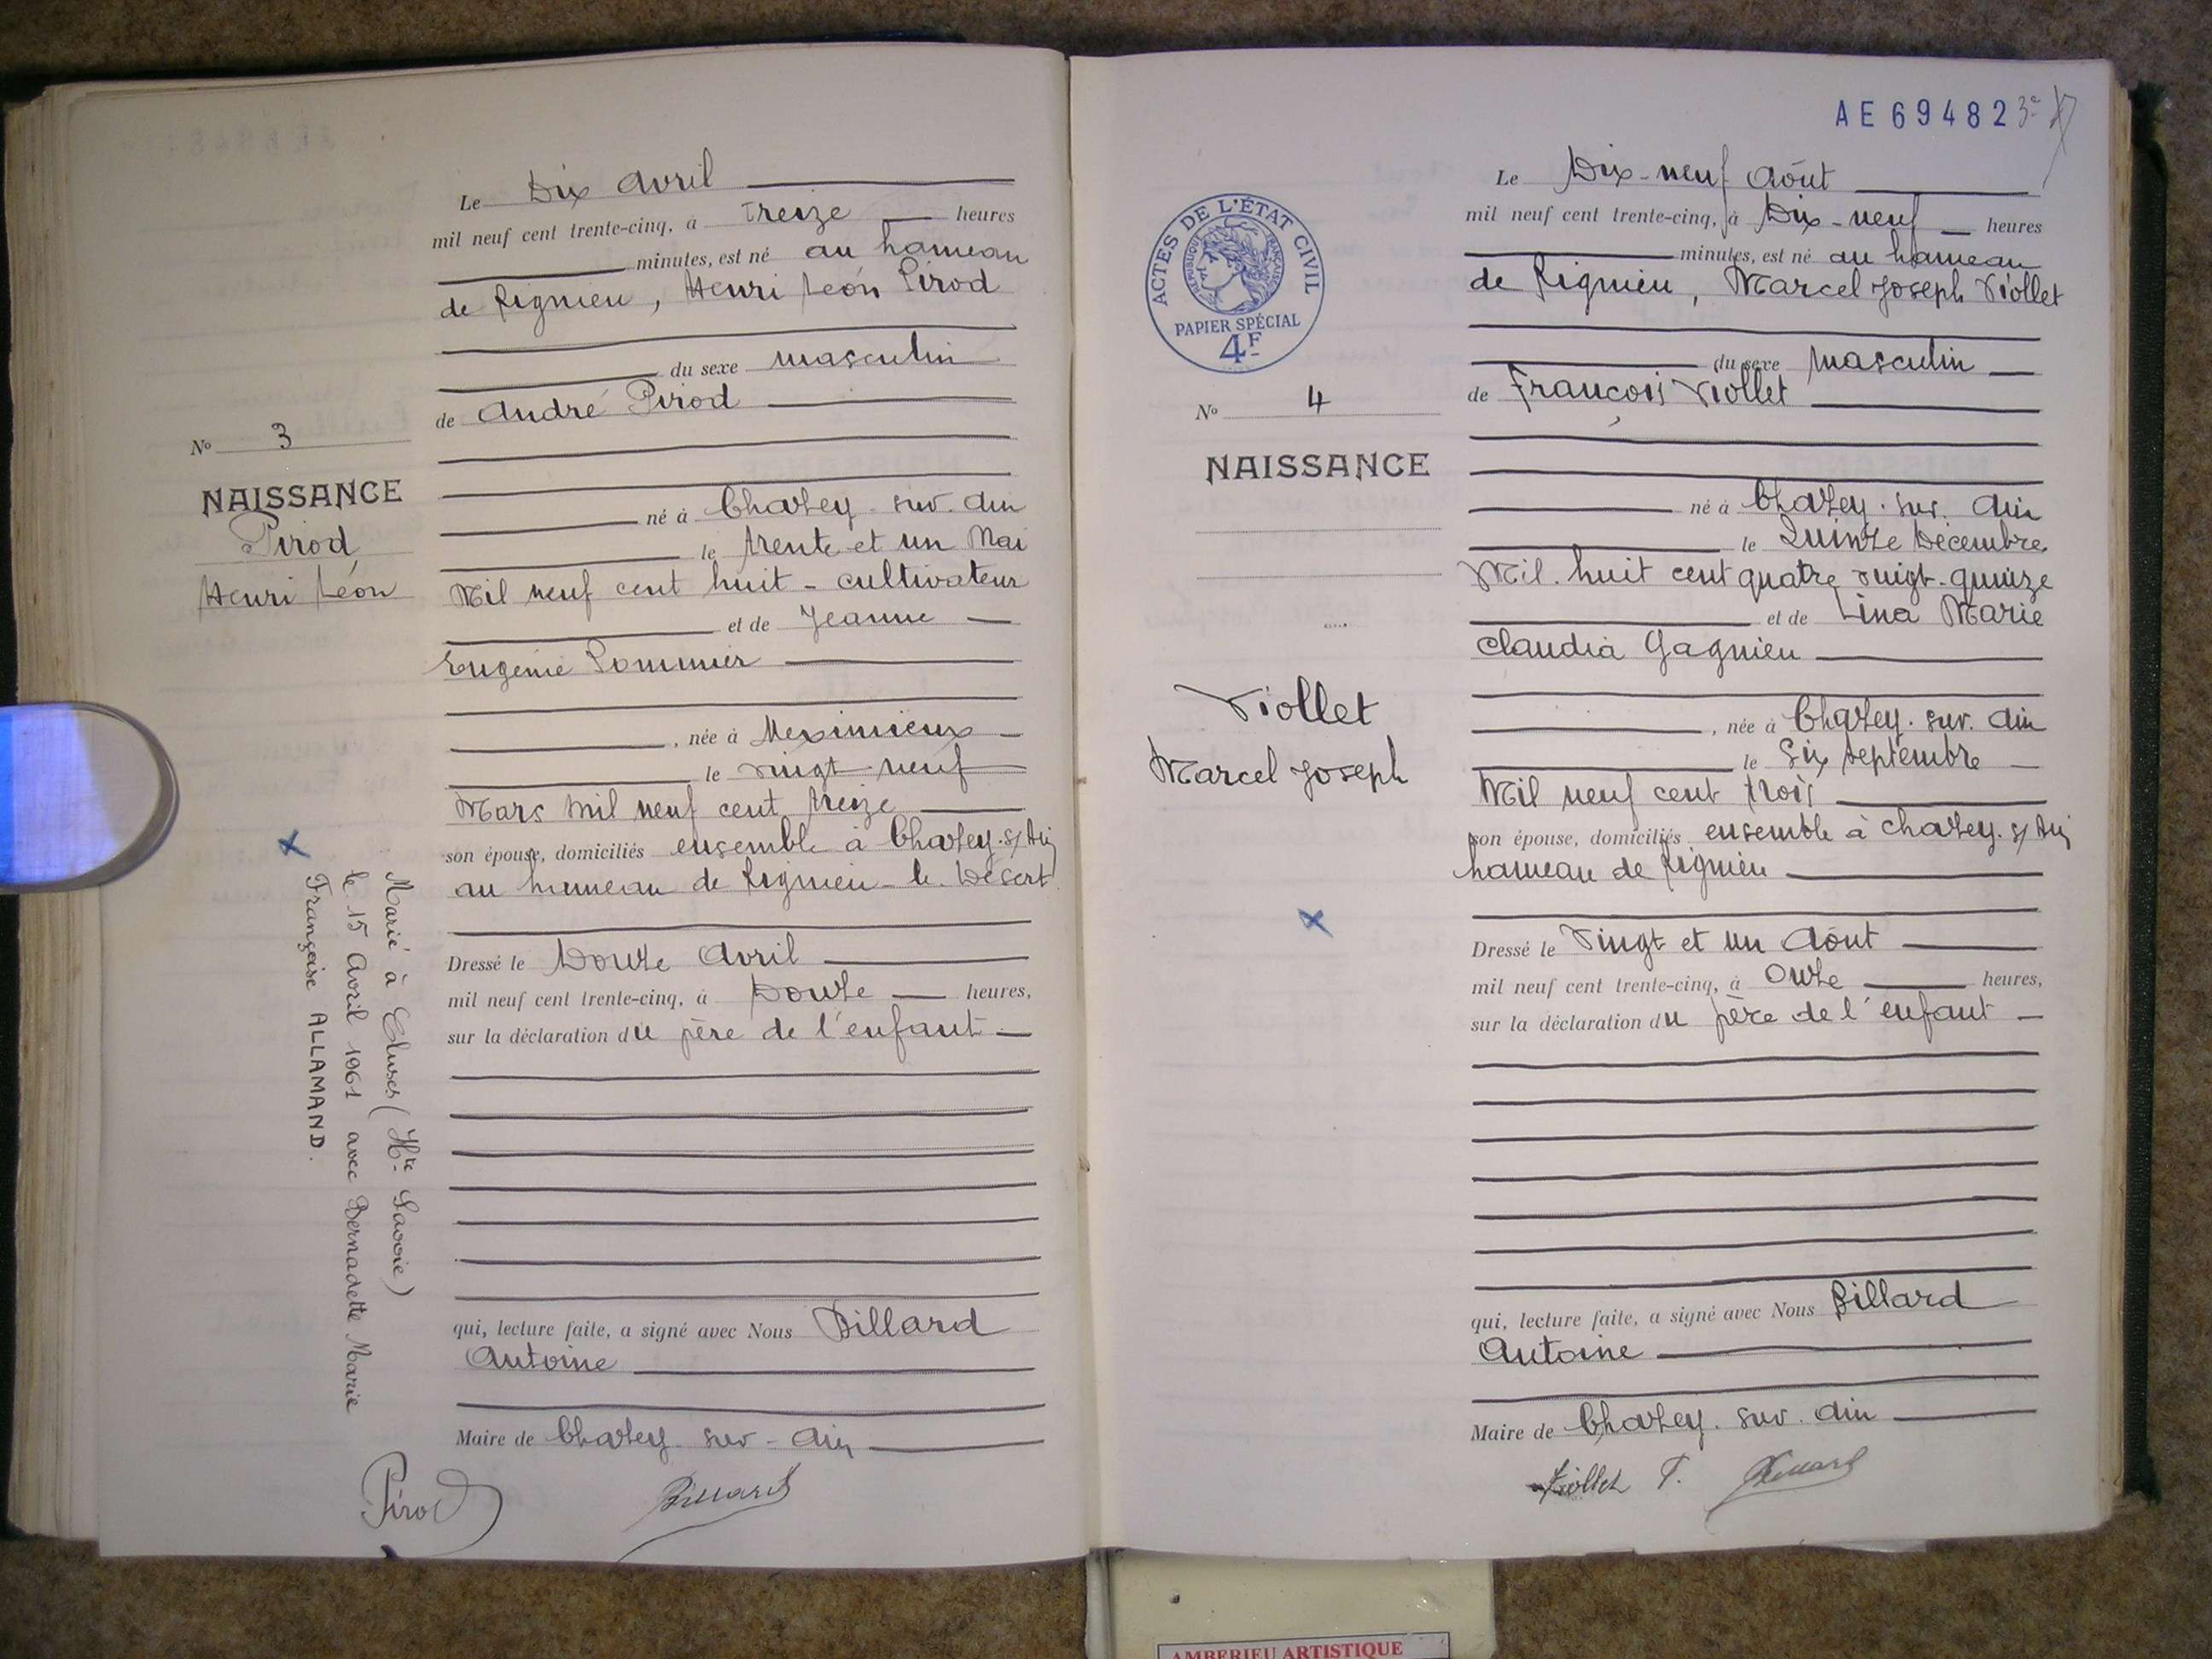 Le Dix Avril
mil neuf cent trente-cinq, à Treize heures
minutes, est né au hameau
de Rignieu, Henri Léon Pirod
du sexe masculin
de André Pirod
né à Chazey-sur-Ain
le trente et un Mai
Mil neuf cent huit - cultivateur
et de Jeanne
Eugénie Pommier
, née à Meximieux
le vingt neuf
Mars Mil neuf cent treize
son épouse, domiciliés ensemble à Chazey-s/Ain
au hameau de Rignieu-le-Désert
Dressé le Douze Avril
mil neuf cent trente-cinq, à Douze heures,
sur la déclaration du père de l'enfant
qui, lecture faite, a signé avec Nous Billard
Antoine
Maire de Chazey-sur-Ain
Pirod
Billard
No 3
NAISSANCE
Pirod
Henri Léon
Marié à Cluses (Hte Savoie)
le 15 Avril 1961 avec Bernadette Marie
Françoise ALLAMAND.
AE 69482 3e
ACTES DE L'ÉTAT CIVIL
RÉPUBLIQUE FRANÇAISE
PAPIER SPÉCIAL
4F
No 4
NAISSANCE
Viollet
Marcel Joseph
Le Dix-neuf Août
mil neuf cent trente-cinq, à Dix-neuf heures
minutes, est né au hameau
de Rignieu, Marcel Joseph Viollet
du sexe Masculin
de François Viollet
né à Chazey-sur-Ain
le Quinze Décembre
Mil-huit cent quatre vingt-quinze
et de Lina Marie
Claudia Gagnieu
, née à Chazey-sur-Ain
le Six Septembre
Mil neuf cent trois
son épouse, domiciliés ensemble à Chazey-s/Ain
hameau de Rignieu
Dressé le Vingt et un Août
mil neuf cent trente-cinq, à Onze heures,
sur la déclaration du père de l'enfant
qui, lecture faite, a signé avec Nous Billard
Antoine
Maire de Chazey-sur-Ain
Viollet F.
Billard
AMBERIEU ARTISTIQUE